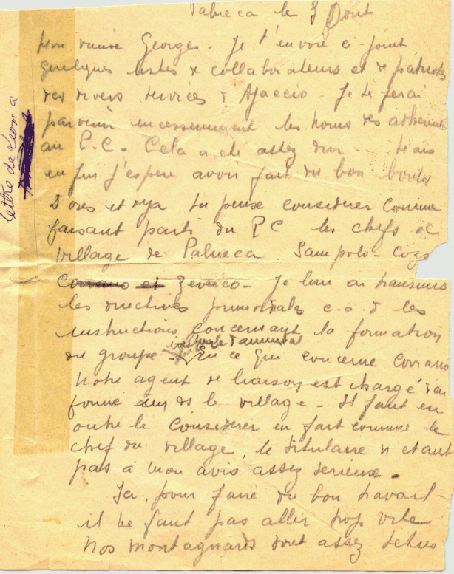 Palneca le 3 Aout
Mon vieux Georges. Je t'envoie ci-joint
quelques listes de collaborateurs et de patriotes
des divers services d'Ajaccio. Je te ferai
parvenir incessamment les noms des adhérents
au P.C. Cela a été assez dur... Mais
enfin j'espère avoir fait du bon boulot
D'ores et déjà tu peux considérer comme
faisant partie du P.C. les chefs de
village de Palneca Sampolo Cozz
Corrano et Zevaco. Je leur ai transmis
les directives primordiales c.a.d les
instructions concernant la formation
du groupe En ce qui concerne Corrano
Notre agent de liaison est chargé d'en
former un de le village. Il faut en
outre le considérer en fait comme le
chef du village, le titulaire n'étant
pas à mon avis assez sérieux.
Ici, pour faire du bon travail
il ne faut pas aller trop vite
Nos montagnards sont assez têtus
lettre de